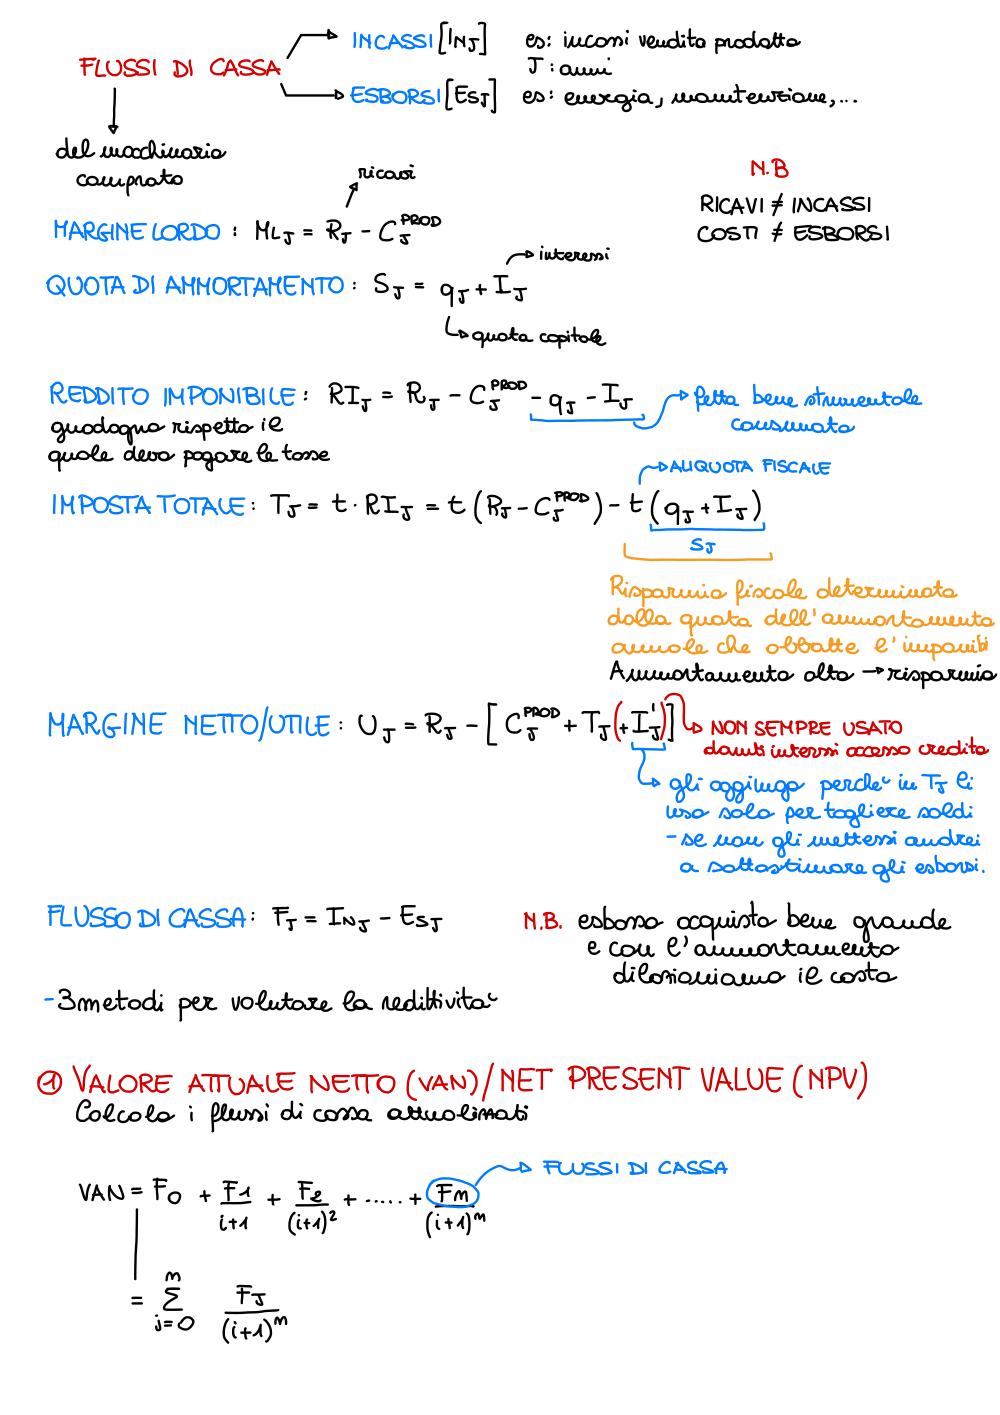 FLUSSI DI CASSA
INCASSI [INJ] es: incassi vendita prodotto
J : anni
ESBORSI [ESJ] es: energia, manutenzione,...
del macchinario
comprato
N.B
RICAVI ≠ INCASSI
COSTI ≠ ESBORSI
ricavi
MARGINE LORDO : MLJ = RJ - CJ^PROD
interessi
QUOTA DI AMMORTAMENTO : SJ = qJ + IJ
quota capitale
REDDITO IMPONIBILE : RIJ = RJ - CJ^PROD - qJ - IJ
fetta bene strumentale
consumato
guadagno rispetto il
quale devo pagare le tasse
ALIQUOTA FISCALE
IMPOSTA TOTALE : TJ = t · RIJ = t (RJ - CJ^PROD) - t (qJ + IJ)
SJ
Risparmio fiscale determinato
dalla quota dell'ammortamento
annuale che abbatte l'imponibi
Ammortamento alto → risparmio
MARGINE NETTO/UTILE : UJ = RJ - [CJ^PROD + TJ (+ I'J)]
NON SEMPRE USATO
dovuti interssi accesso credito
gli aggiungo perchè in TJ li
uso solo per togliere soldi
- se non gli mettessi andrei
a sottostimare gli esborsi.
FLUSSO DI CASSA : FJ = INJ - ESJ
N.B. esborso acquisto bene grande
e con l'ammortamento
dilazioniamo il costo
- 3 metodi per valutare la redittività
① VALORE ATTUALE NETTO (VAN) / NET PRESENT VALUE (NPV)
Calcolo i flussi di cassa attualizzati
FLUSSI DI CASSA
VAN = F0 + F1/(i+1) + F2/(i+1)^2 + ..... + Fn/(i+1)^n
= Σ_{j=0}^{n} FJ/(i+1)^n